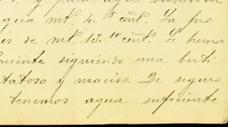 agua mt. 4. cent. La pro
és de mt. 13. 10 cent. de hema
niente siguiendo una verti
tatoso y maciso. De segura
tenemos agua suficiente